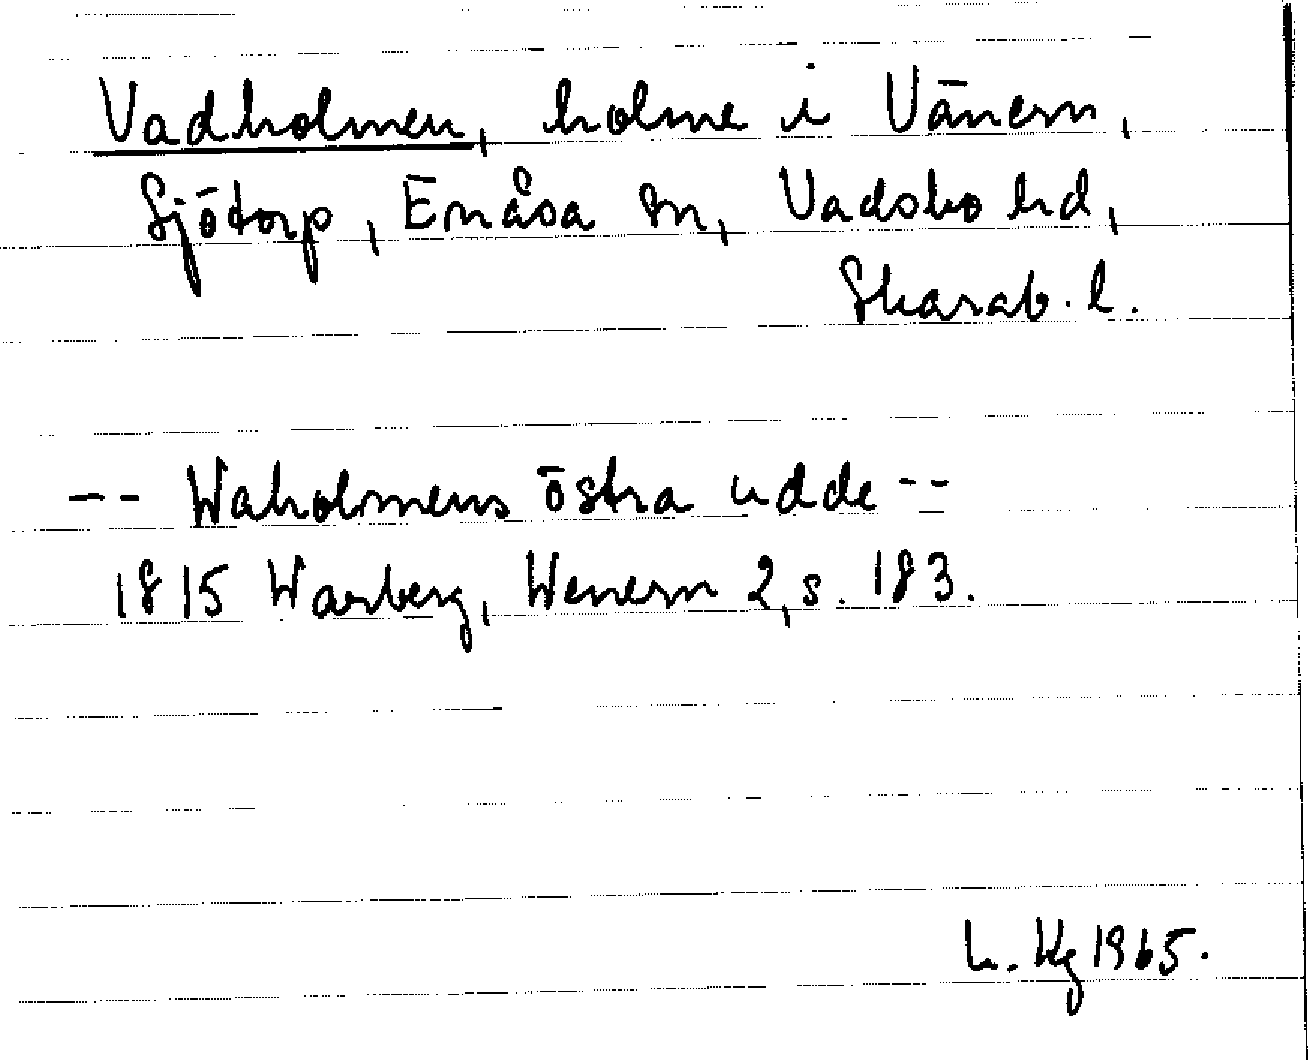 Vadholmen, holme i Vänern,
Sjötorp, Enåsa sn, Vadsbo hd,
Skarab. l.
-- Waholmens östra udde --
1815 Warberg, Wenern 2, s. 183.
L. Hg 1965.